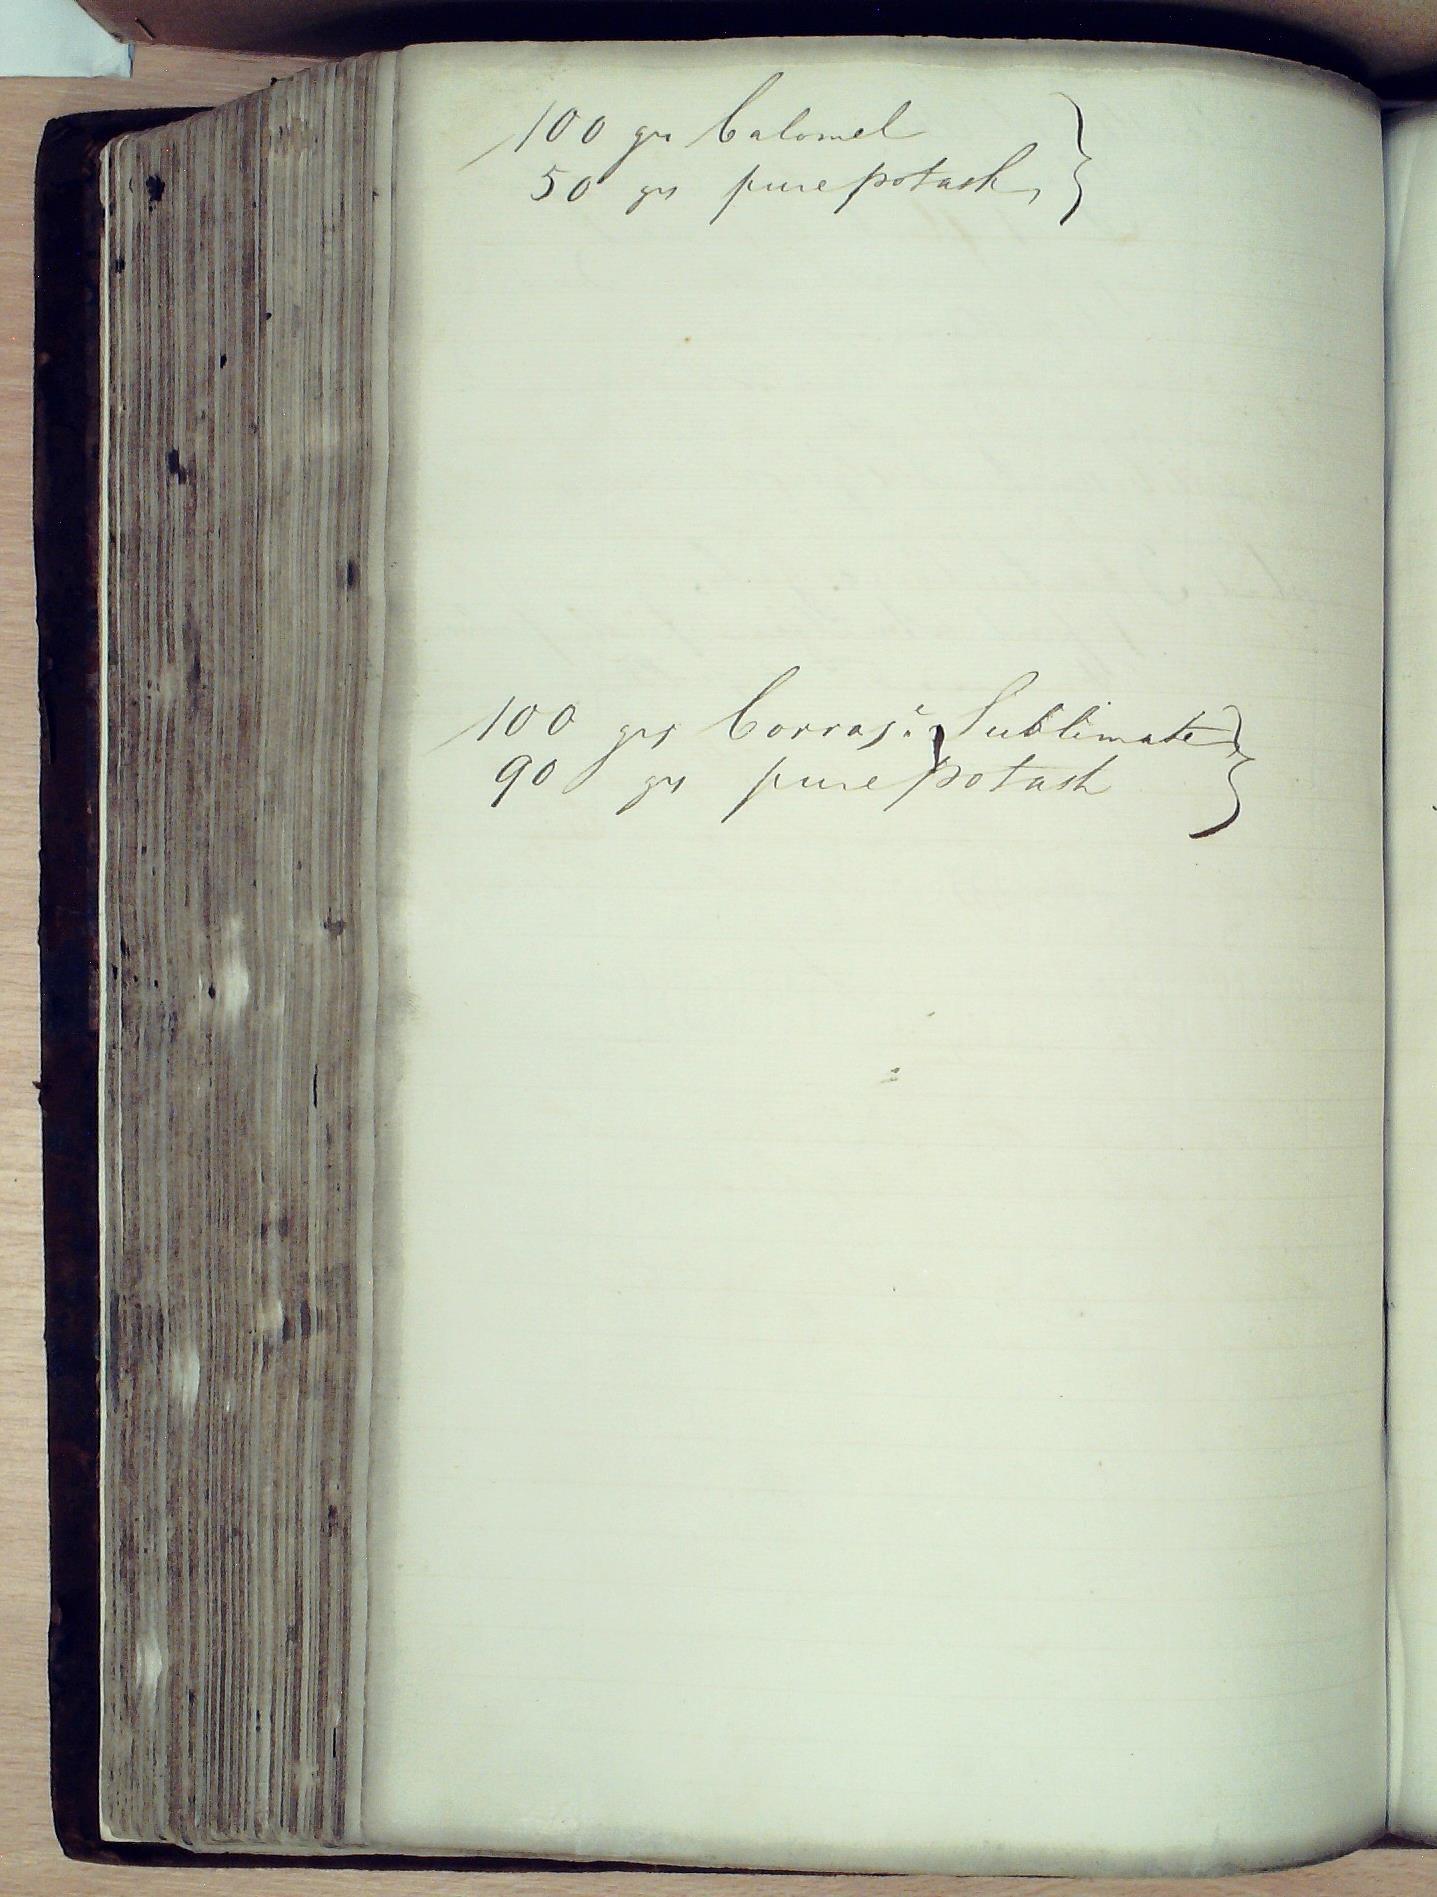 100 grs Calomel }
50 grs pure potash, }
100 grs Corros: Sublimate }
90 grs pure potash }